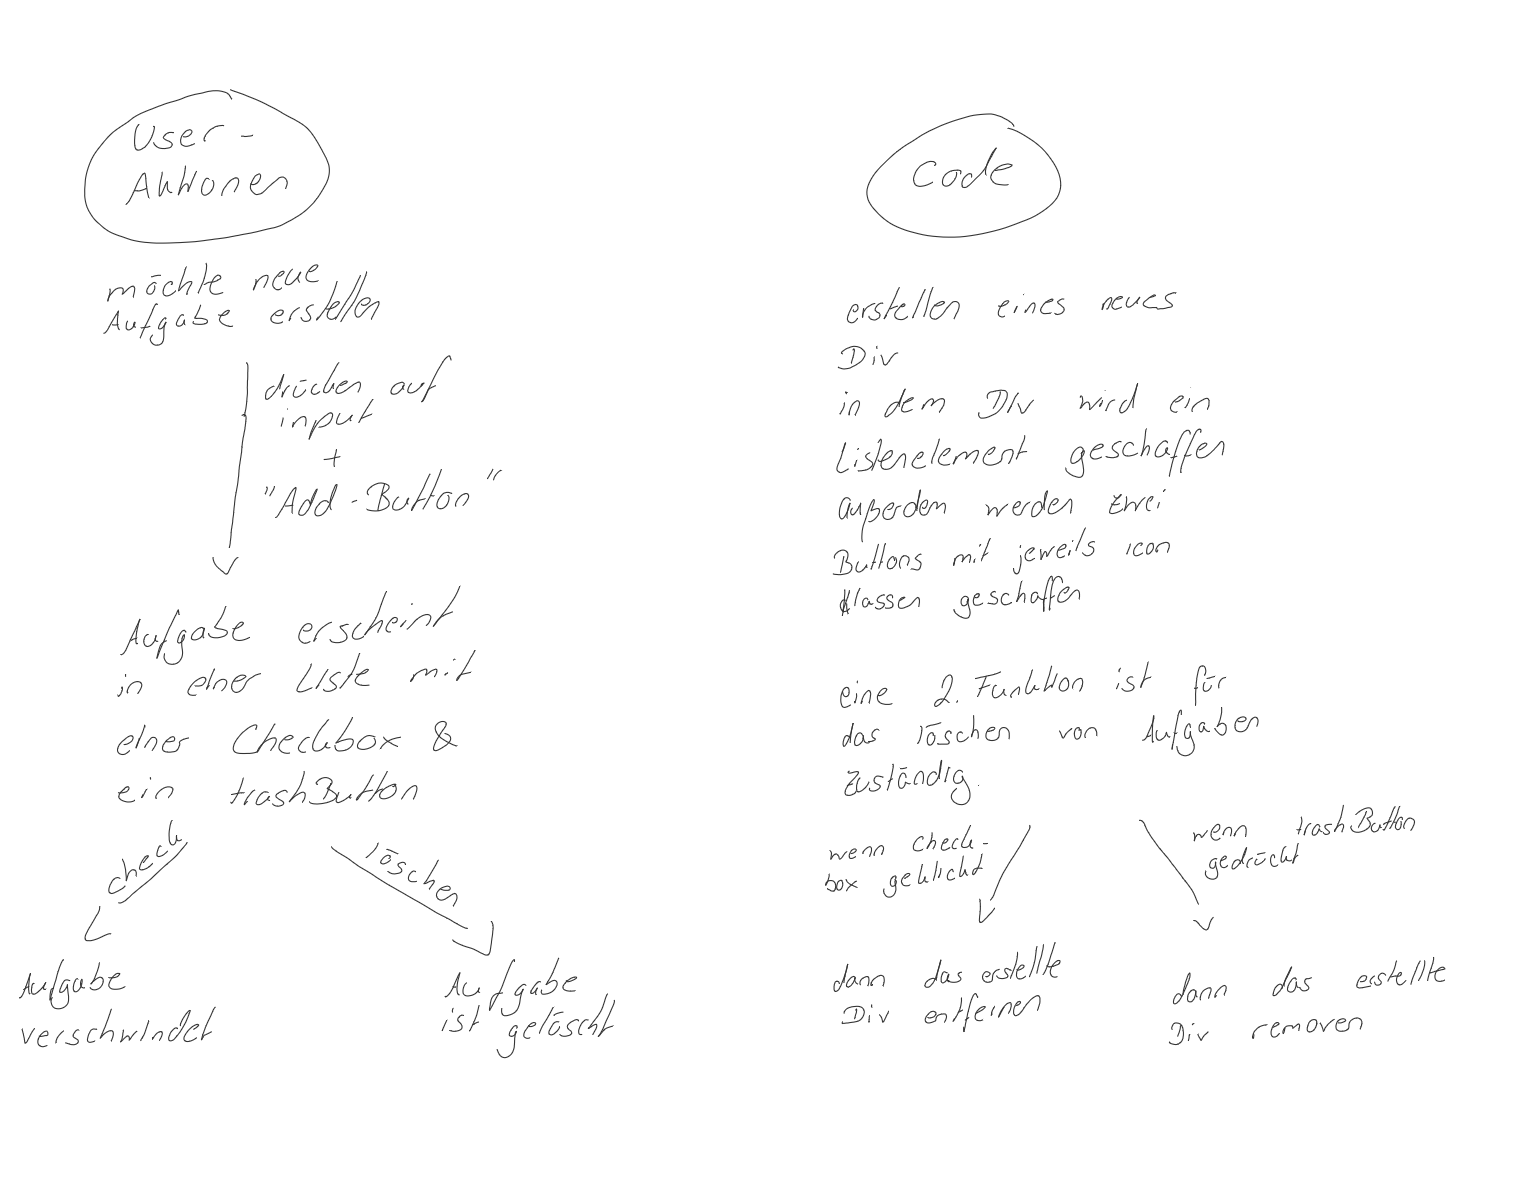 User-
Aktionen
möchte neue
Aufgabe erstellen
drücken auf
input
+
"Add-Button"
Aufgabe erscheint
in einer Liste mit
einer Checkbox &
ein trashButton
check
löschen
Aufgabe
verschwindet
Aufgabe
ist gelöscht
Code
erstellen eines neues
Div
in dem Div wird ein
Listenelement geschaffen
außerdem werden zwei
Buttons mit jeweils icon
Klassen geschaffen
eine 2. Funktion ist für
das löschen von Aufgaben
zuständig.
wenn Check-
box geklickt
wenn trashButton
gedrückt
dann das erstellte
Div entfernen
dann das erstellte
Div removen